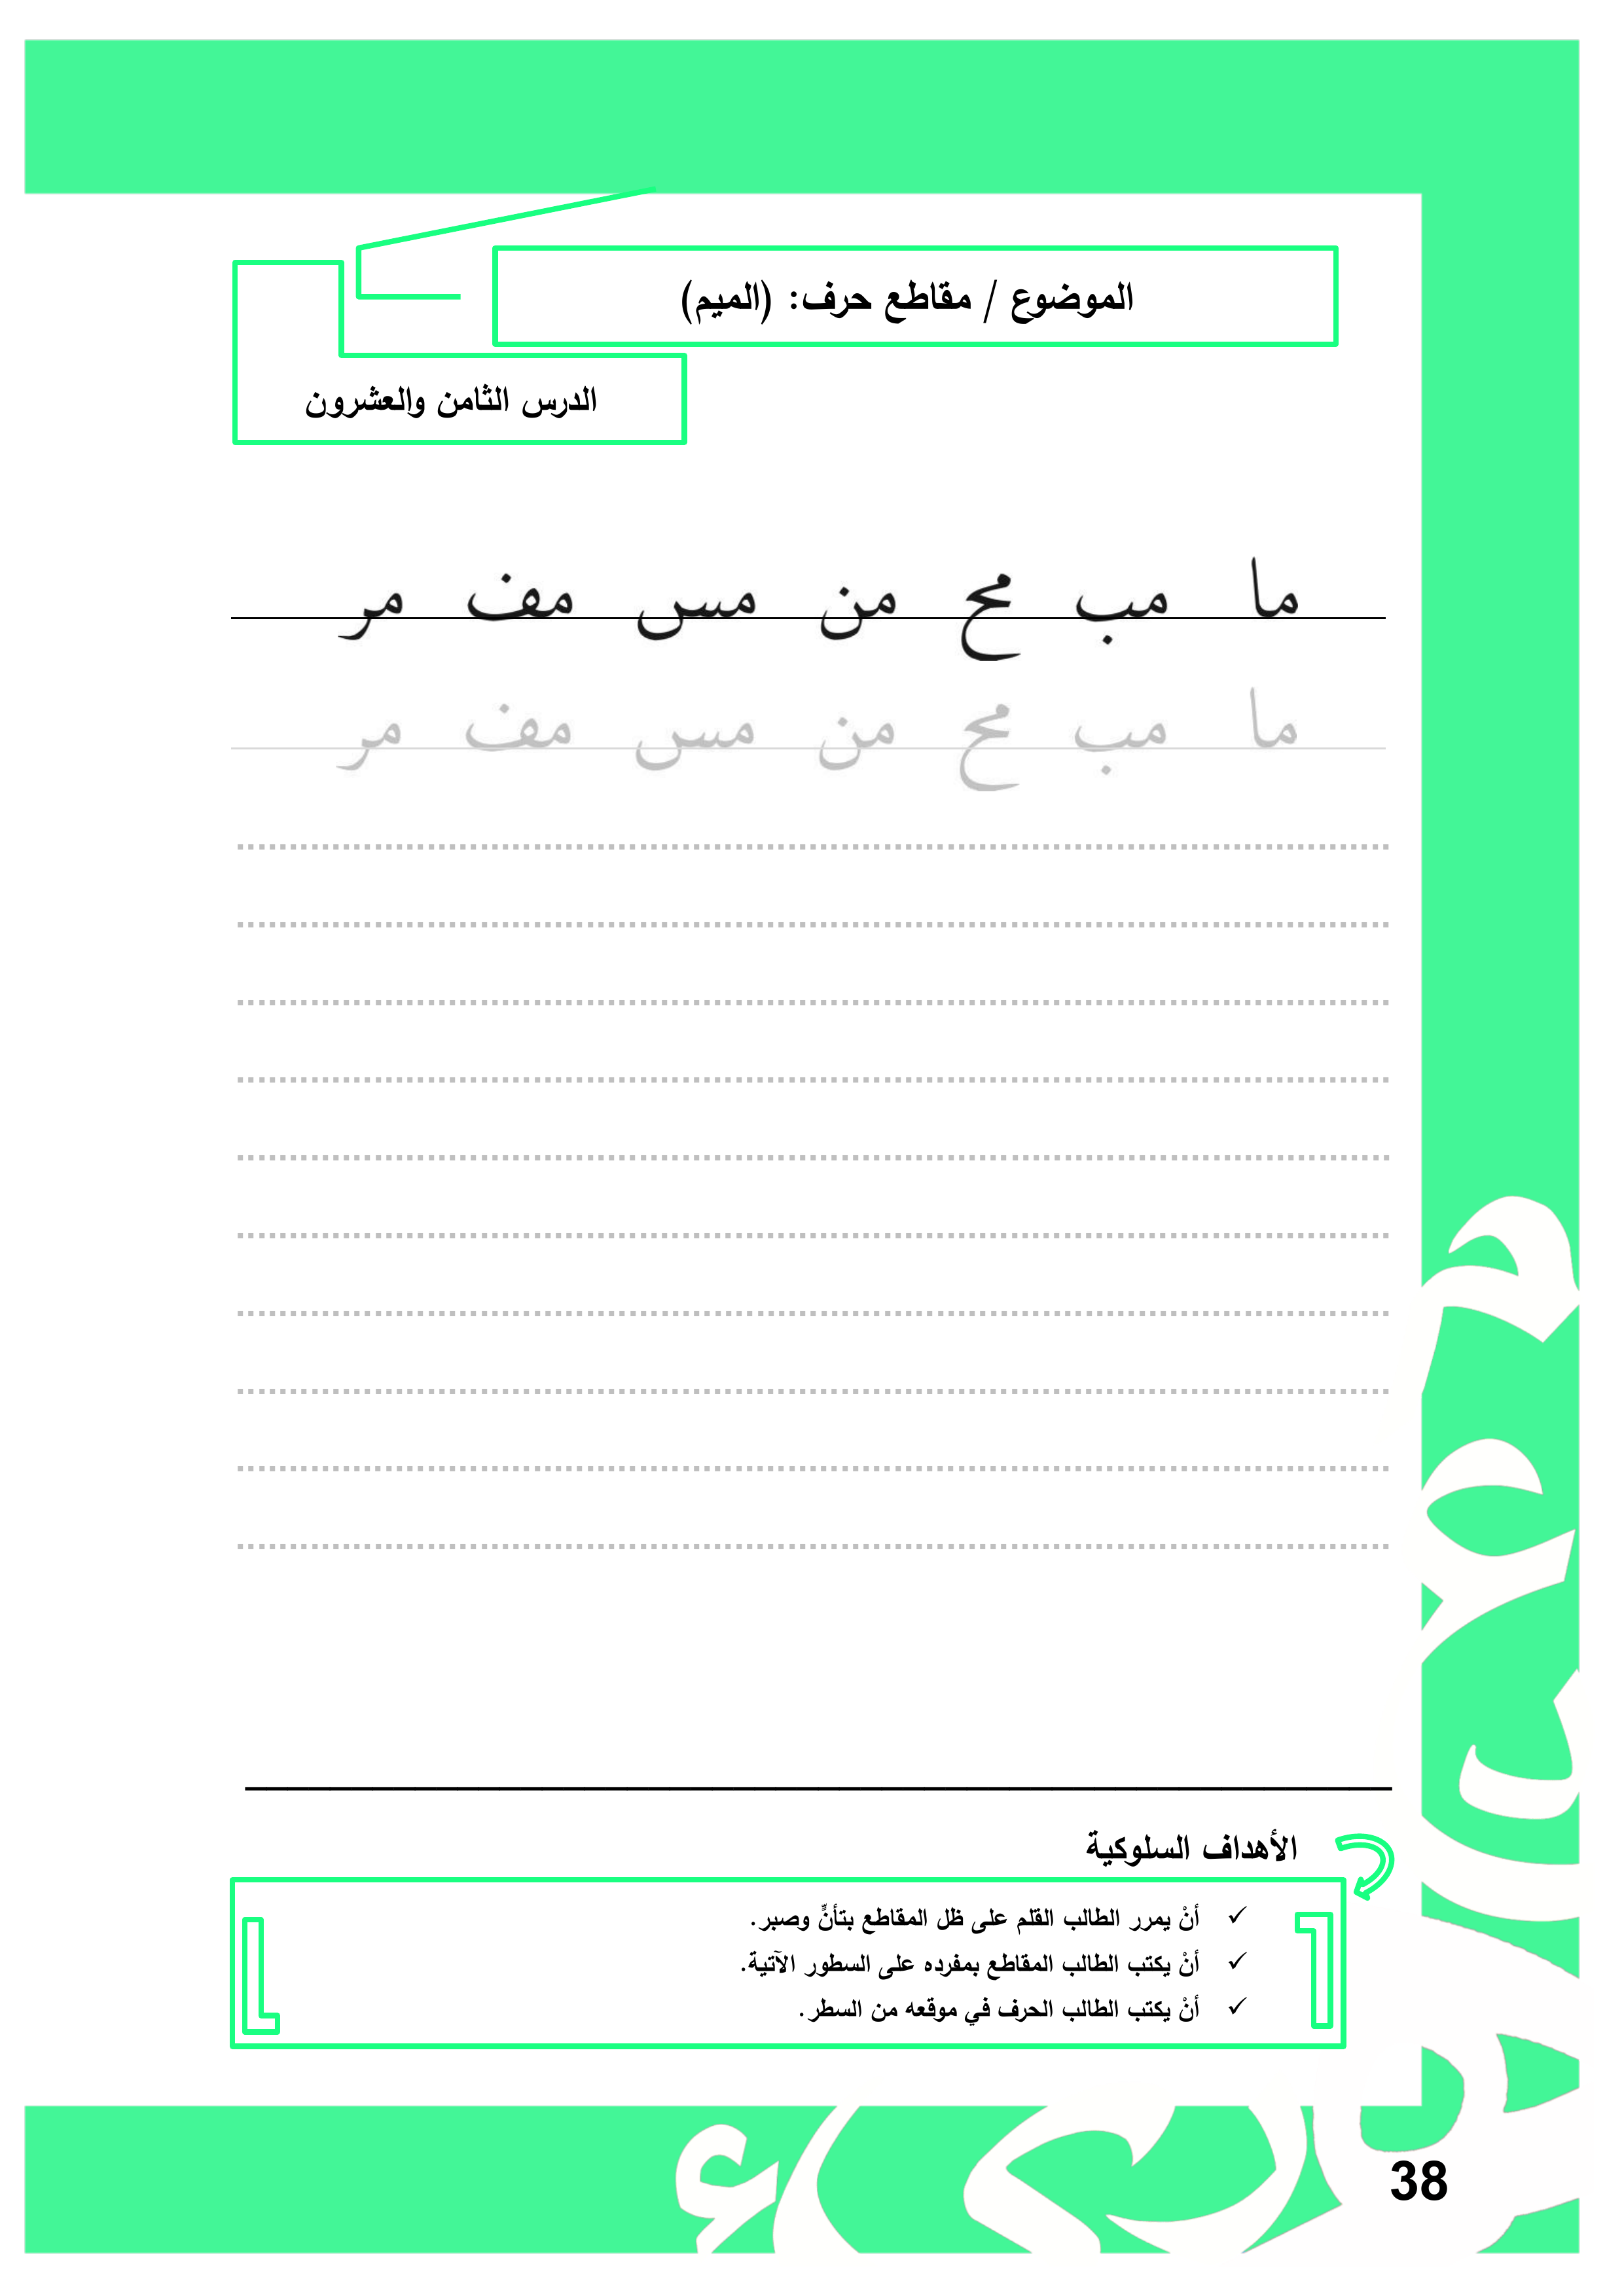 الموضوع / مقاطع حرف: (الميم)
الدرس الثامن والعشرون
ما مب مح من مس مف مر
ما مب مح من مس مف مر
الأهداف السلوكية
✓ أنْ يمرر الطالب القلم على ظل المقاطع بتأنٍّ وصبر.
✓ أنْ يكتب الطالب المقاطع بمفرده على السطور الآتية.
✓ أنْ يكتب الطالب الحرف في موقعه من السطر.
38